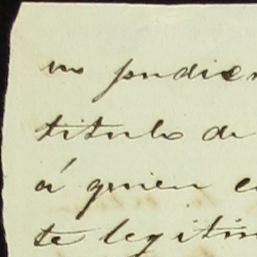 no pudien
titulo de
á quien e
te legitim